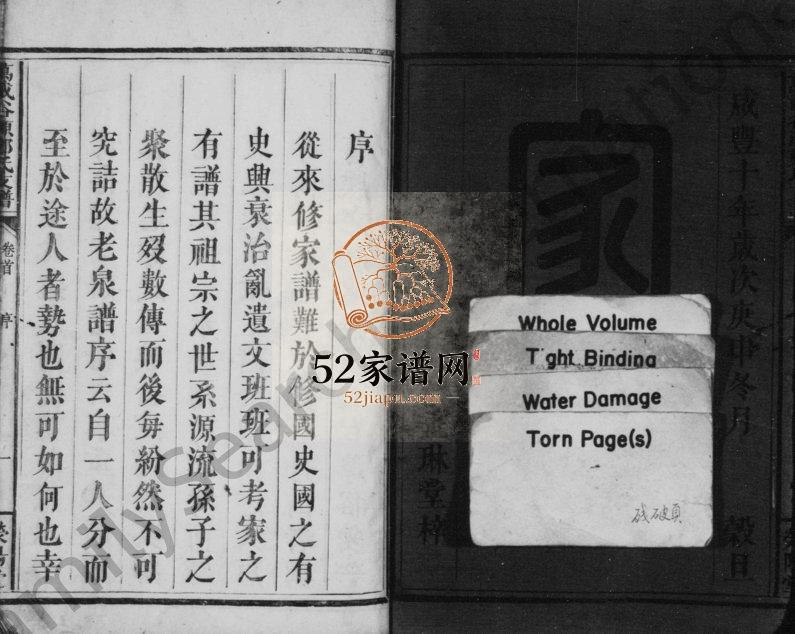 序
從來修家譜難於修國史國之有
史興衰治亂遺文班班可考家之
有譜其祖宗之世系源流孫子之
聚散生歿數傳而後每紛然不可
究詰故老泉譜序云自一人分而
至於途人者勢也無可如何也幸
卷首
序
一
咸豐
冬月
穀旦
家
琳堂梓
Whole Volume
Tight Binding
Water Damage
Torn Page(s)
残破頁
52家谱网
52jiapu.com
FamilySearch